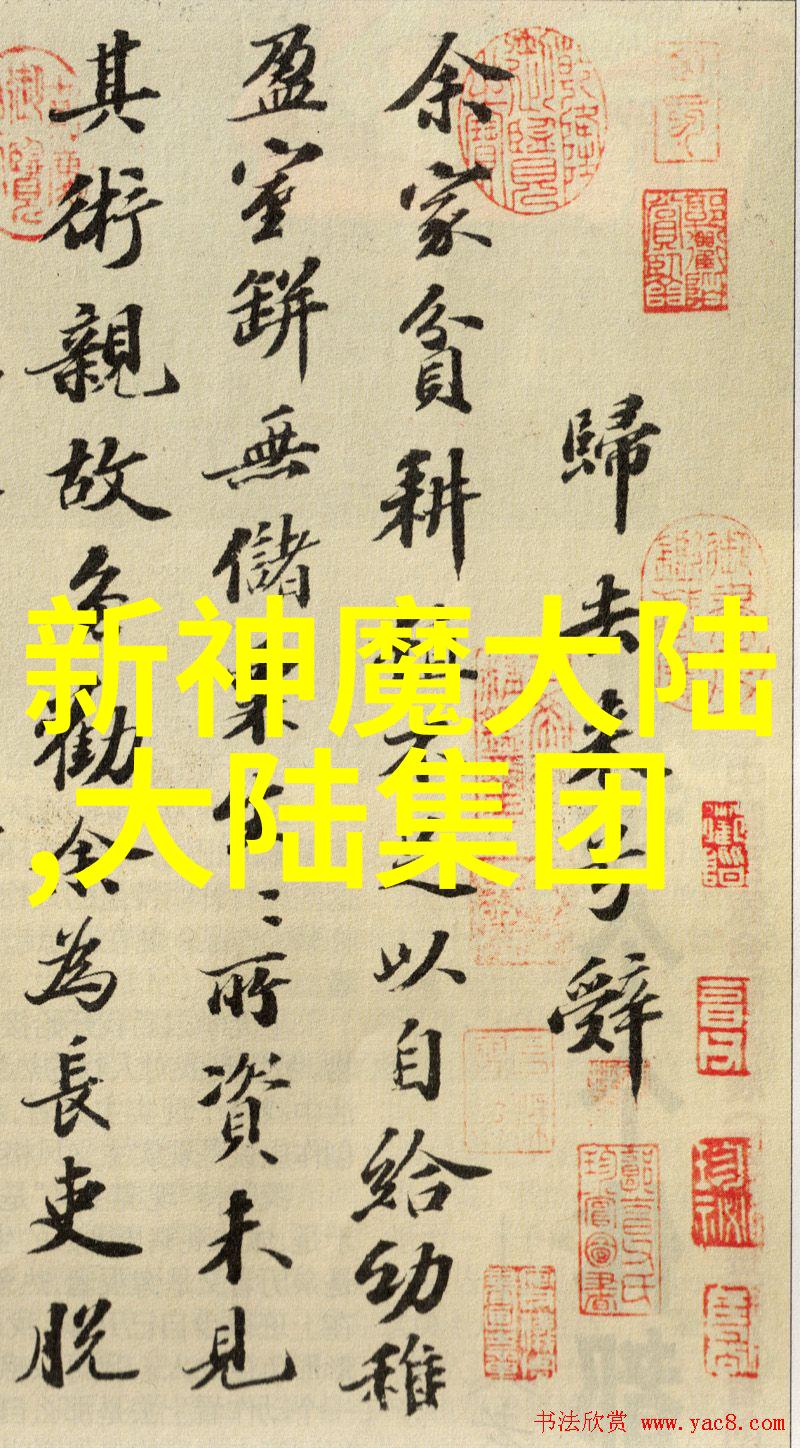 歸去来兮辭
余家貧耕植不足以自給幼稚
盈室缾無儲粟生〻所資未見
其術親故多勸余為長吏脱
新神魔大陆
,大陆集团
书法欣赏 www.yac8.com